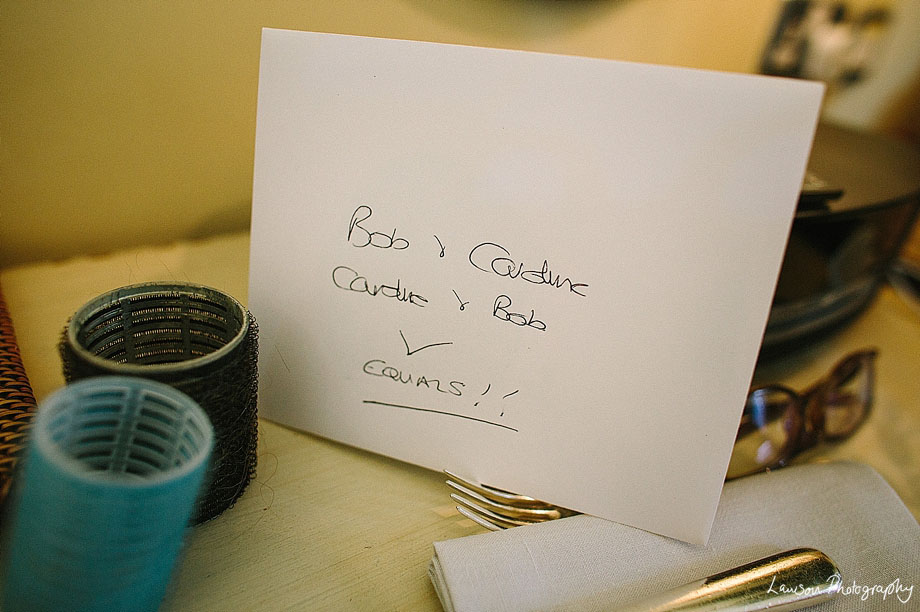 Bob & Caroline
Caroline & Bob
✓
EQUALS!!
Lawson Photography